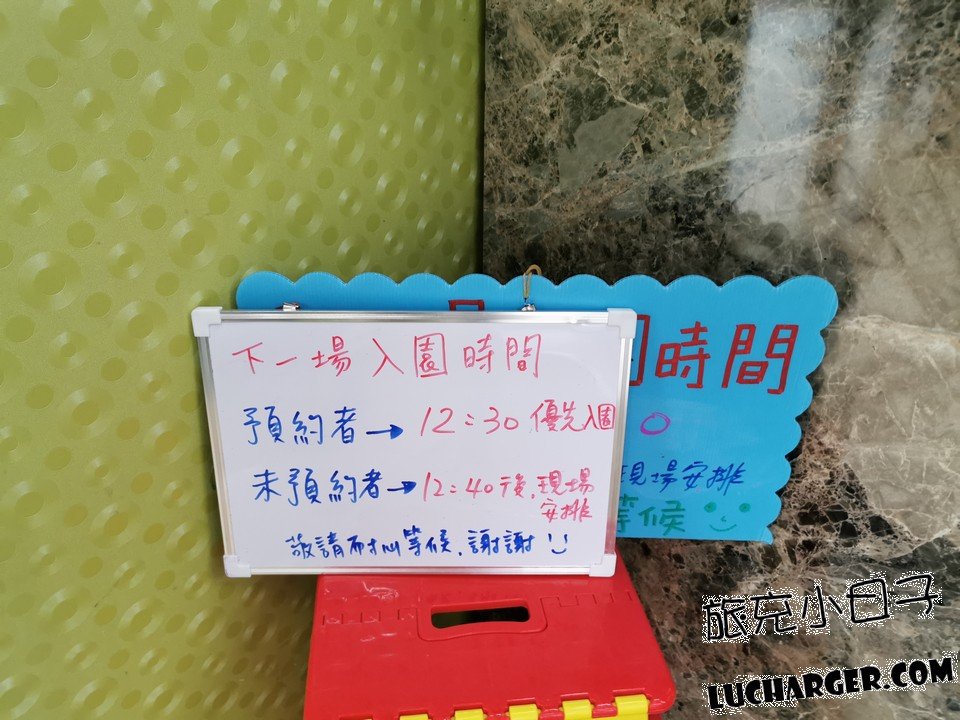 下一場入園時間
預約者→12:30優先入園
未預約者→12:40後,現場
安排
敬請耐心等候,謝謝
時間
現場安排
等候
旅充小日子
LUCHARGER.COM